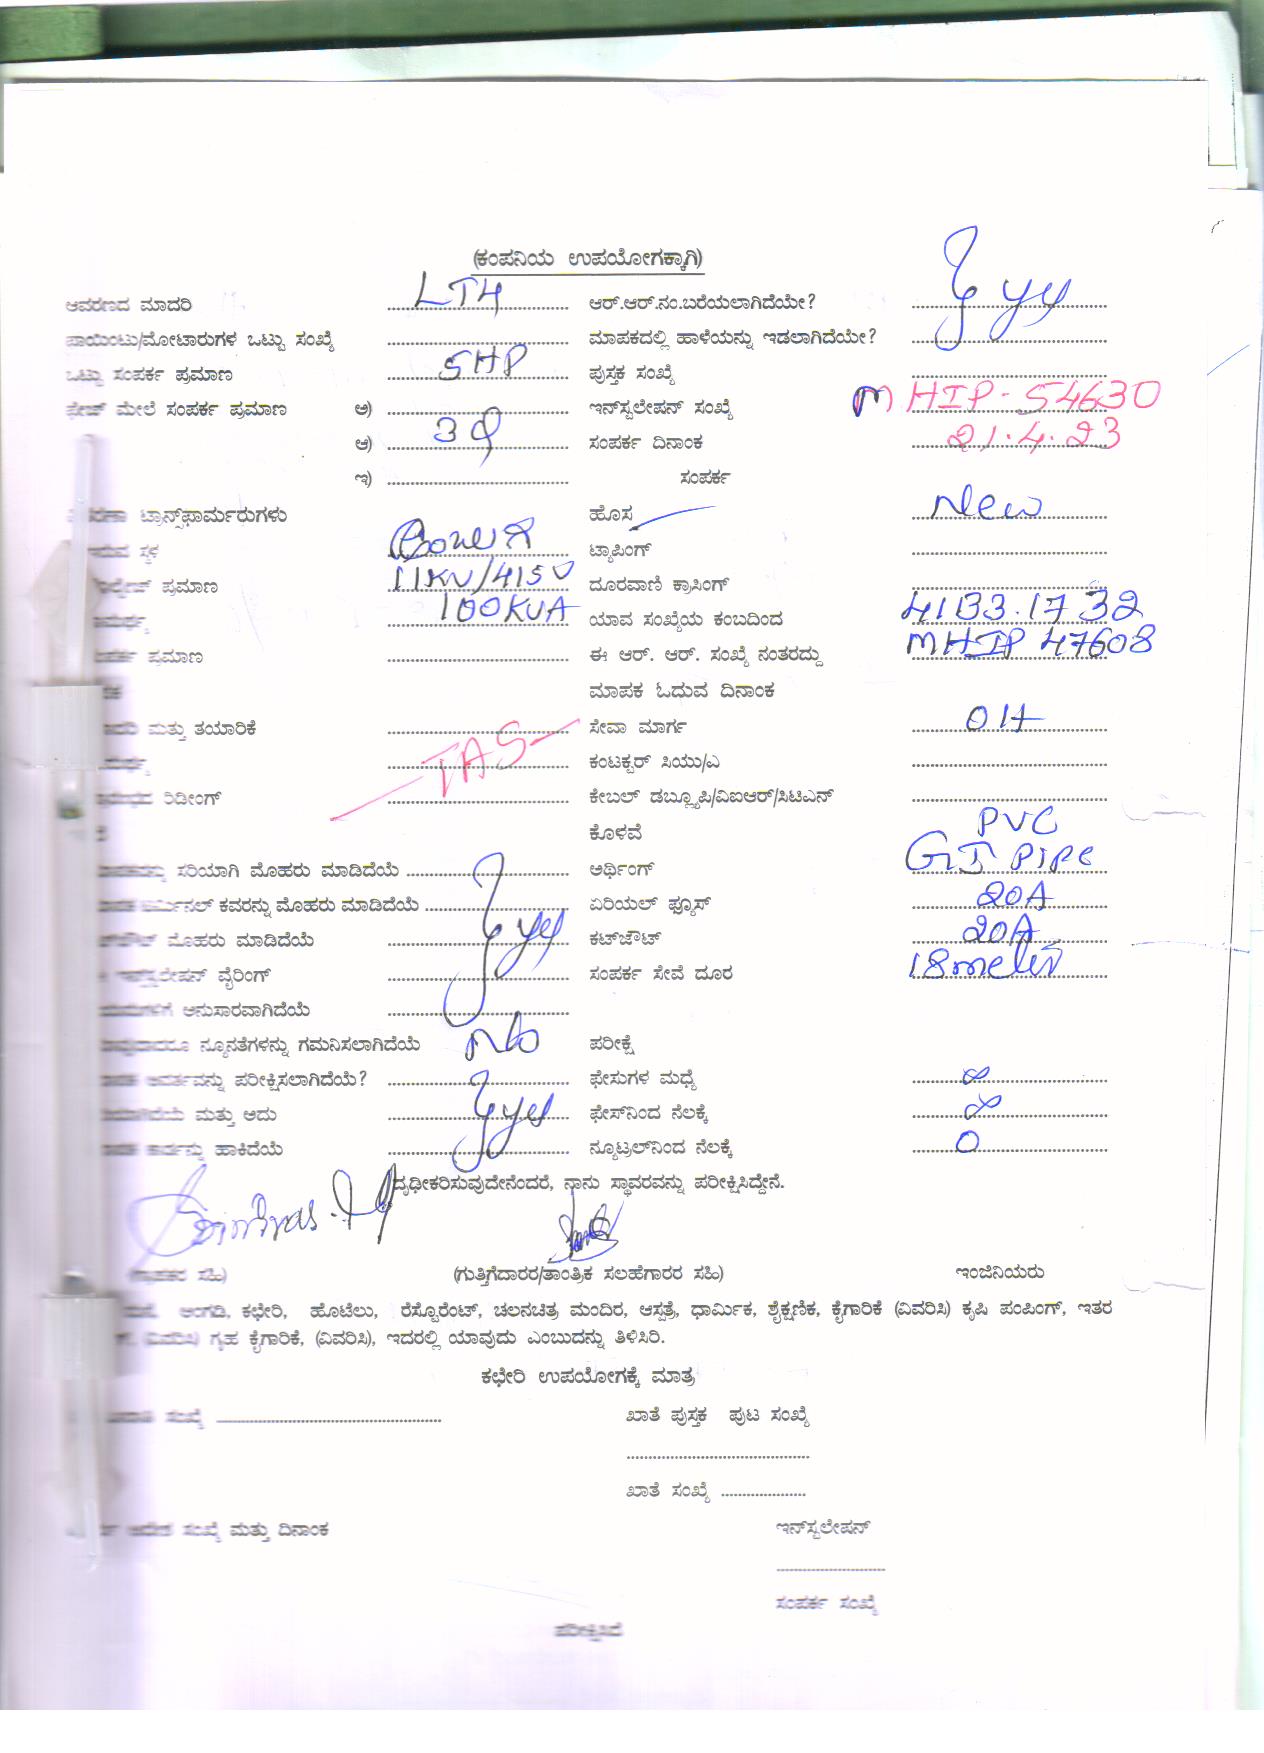 (ಕಂಪನಿಯ ಉಪಯೋಗಕ್ಕಾಗಿ)
ಆವರಣದ ಮಾದರಿ LT4 ಆರ್.ಆರ್.ನಂ.ಬರೆಯಲಾಗಿದೆಯೇ?
ಪಾಯಿಂಟು/ಮೋಟಾರುಗಳ ಒಟ್ಟು ಸಂಖ್ಯೆ ಮಾಪಕದಲ್ಲಿ ಹಾಳೆಯನ್ನು ಇಡಲಾಗಿದೆಯೇ? yes
ಒಟ್ಟು ಸಂಪರ್ಕ ಪ್ರಮಾಣ 5HP ಪುಸ್ತಕ ಸಂಖ್ಯೆ
ಫೇಜ್ ಮೇಲೆ ಸಂಪರ್ಕ ಪ್ರಮಾಣ ಅ) ಇನ್‌ಸ್ಟಲೇಷನ್ ಸಂಖ್ಯೆ MHIP-54630
ಆ) 3φ ಸಂಪರ್ಕ ದಿನಾಂಕ 21.4.23
ಇ) ಸಂಪರ್ಕ
ಟ್ರಾನ್ಸ್‌ಫಾರ್ಮರುಗಳು ಹೊಸ New
ಸ್ಥಳ ಟ್ಯಾಪಿಂಗ್
ಪ್ರಮಾಣ 11KV/415V ದೂರವಾಣಿ ಕ್ರಾಸಿಂಗ್
100KVA ಯಾವ ಸಂಖ್ಯೆಯ ಕಂಬದಿಂದ 4133.17 32
ಪ್ರಮಾಣ ಈ ಆರ್. ಆರ್. ಸಂಖ್ಯೆ ನಂತರದ್ದು MHIP 47608
ಮಾಪಕ ಓದುವ ದಿನಾಂಕ
ಮತ್ತು ತಯಾರಿಕೆ ಸೇವಾ ಮಾರ್ಗ OH
TAS ಕಂಟಕ್ಟರ್ ಸಿಯು/ಎ
ರಿಡೀಂಗ್ ಕೇಬಲ್ ಡಬ್ಲ್ಯೂಪಿ/ವಿಐಆರ್/ಸಿಟಿಎನ್
ಕೊಳವೆ PVC
ಸರಿಯಾಗಿ ಮೊಹರು ಮಾಡಿದೆಯೆ ಅರ್ಥಿಂಗ್ GI Pipe
ಟರ್ಮಿನಲ್ ಕವರನ್ನು ಮೊಹರು ಮಾಡಿದೆಯೆ ಏರಿಯಲ್ ಫ್ಯೂಸ್ 20A
ಮೊಹರು ಮಾಡಿದೆಯೆ yes ಕಟ್‌ಜೌಟ್ 20A
ಇನ್‌ಸ್ಟಲೇಷನ್ ವೈರಿಂಗ್ ಸಂಪರ್ಕ ಸೇವೆ ದೂರ 18 meter
ಅನುಸಾರವಾಗಿದೆಯೆ
ನ್ಯೂನತೆಗಳನ್ನು ಗಮನಿಸಲಾಗಿದೆಯೆ No ಪರೀಕ್ಷೆ
ಪರೀಕ್ಷಿಸಲಾಗಿದೆಯೆ? ಫೇಸುಗಳ ಮಧ್ಯೆ ∞
ಮತ್ತು ಅದು yes ಫೇಸ್‌ನಿಂದ ನೆಲಕ್ಕೆ ∞
ಹಾಕಿದೆಯೆ ನ್ಯೂಟ್ರಲ್‌ನಿಂದ ನೆಲಕ್ಕೆ 0
ದೃಢೀಕರಿಸುವುದೇನೆಂದರೆ, ನಾನು ಸ್ಥಾವರವನ್ನು ಪರೀಕ್ಷಿಸಿದ್ದೇನೆ.
ಸಹಿ) (ಗುತ್ತಿಗೆದಾರರ/ತಾಂತ್ರಿಕ ಸಲಹೆಗಾರರ ಸಹಿ) ಇಂಜಿನಿಯರು
ಅಂಗಡಿ, ಕಛೇರಿ, ಹೊಟೆಲು, ರೆಸ್ಟೊರೆಂಟ್, ಚಲನಚಿತ್ರ ಮಂದಿರ, ಆಸ್ಪತ್ರೆ, ಧಾರ್ಮಿಕ, ಶೈಕ್ಷಣಿಕ, ಕೈಗಾರಿಕೆ (ವಿವರಿಸಿ) ಕೃಷಿ ಪಂಪಿಂಗ್, ಇತರ
(ವಿವರಿಸಿ) ಗೃಹ ಕೈಗಾರಿಕೆ, (ವಿವರಿಸಿ), ಇದರಲ್ಲಿ ಯಾವುದು ಎಂಬುದನ್ನು ತಿಳಿಸಿರಿ.
ಕಛೇರಿ ಉಪಯೋಗಕ್ಕೆ ಮಾತ್ರ
ಸಂಖ್ಯೆ ಖಾತೆ ಪುಸ್ತಕ ಪುಟ ಸಂಖ್ಯೆ
ಖಾತೆ ಸಂಖ್ಯೆ
ಆದೇಶ ಸಂಖ್ಯೆ ಮತ್ತು ದಿನಾಂಕ ಇನ್‌ಸ್ಟಲೇಷನ್
ಸಂಪರ್ಕ ಸಂಖ್ಯೆ
ಪರೀಕ್ಷಿಸಿದೆ